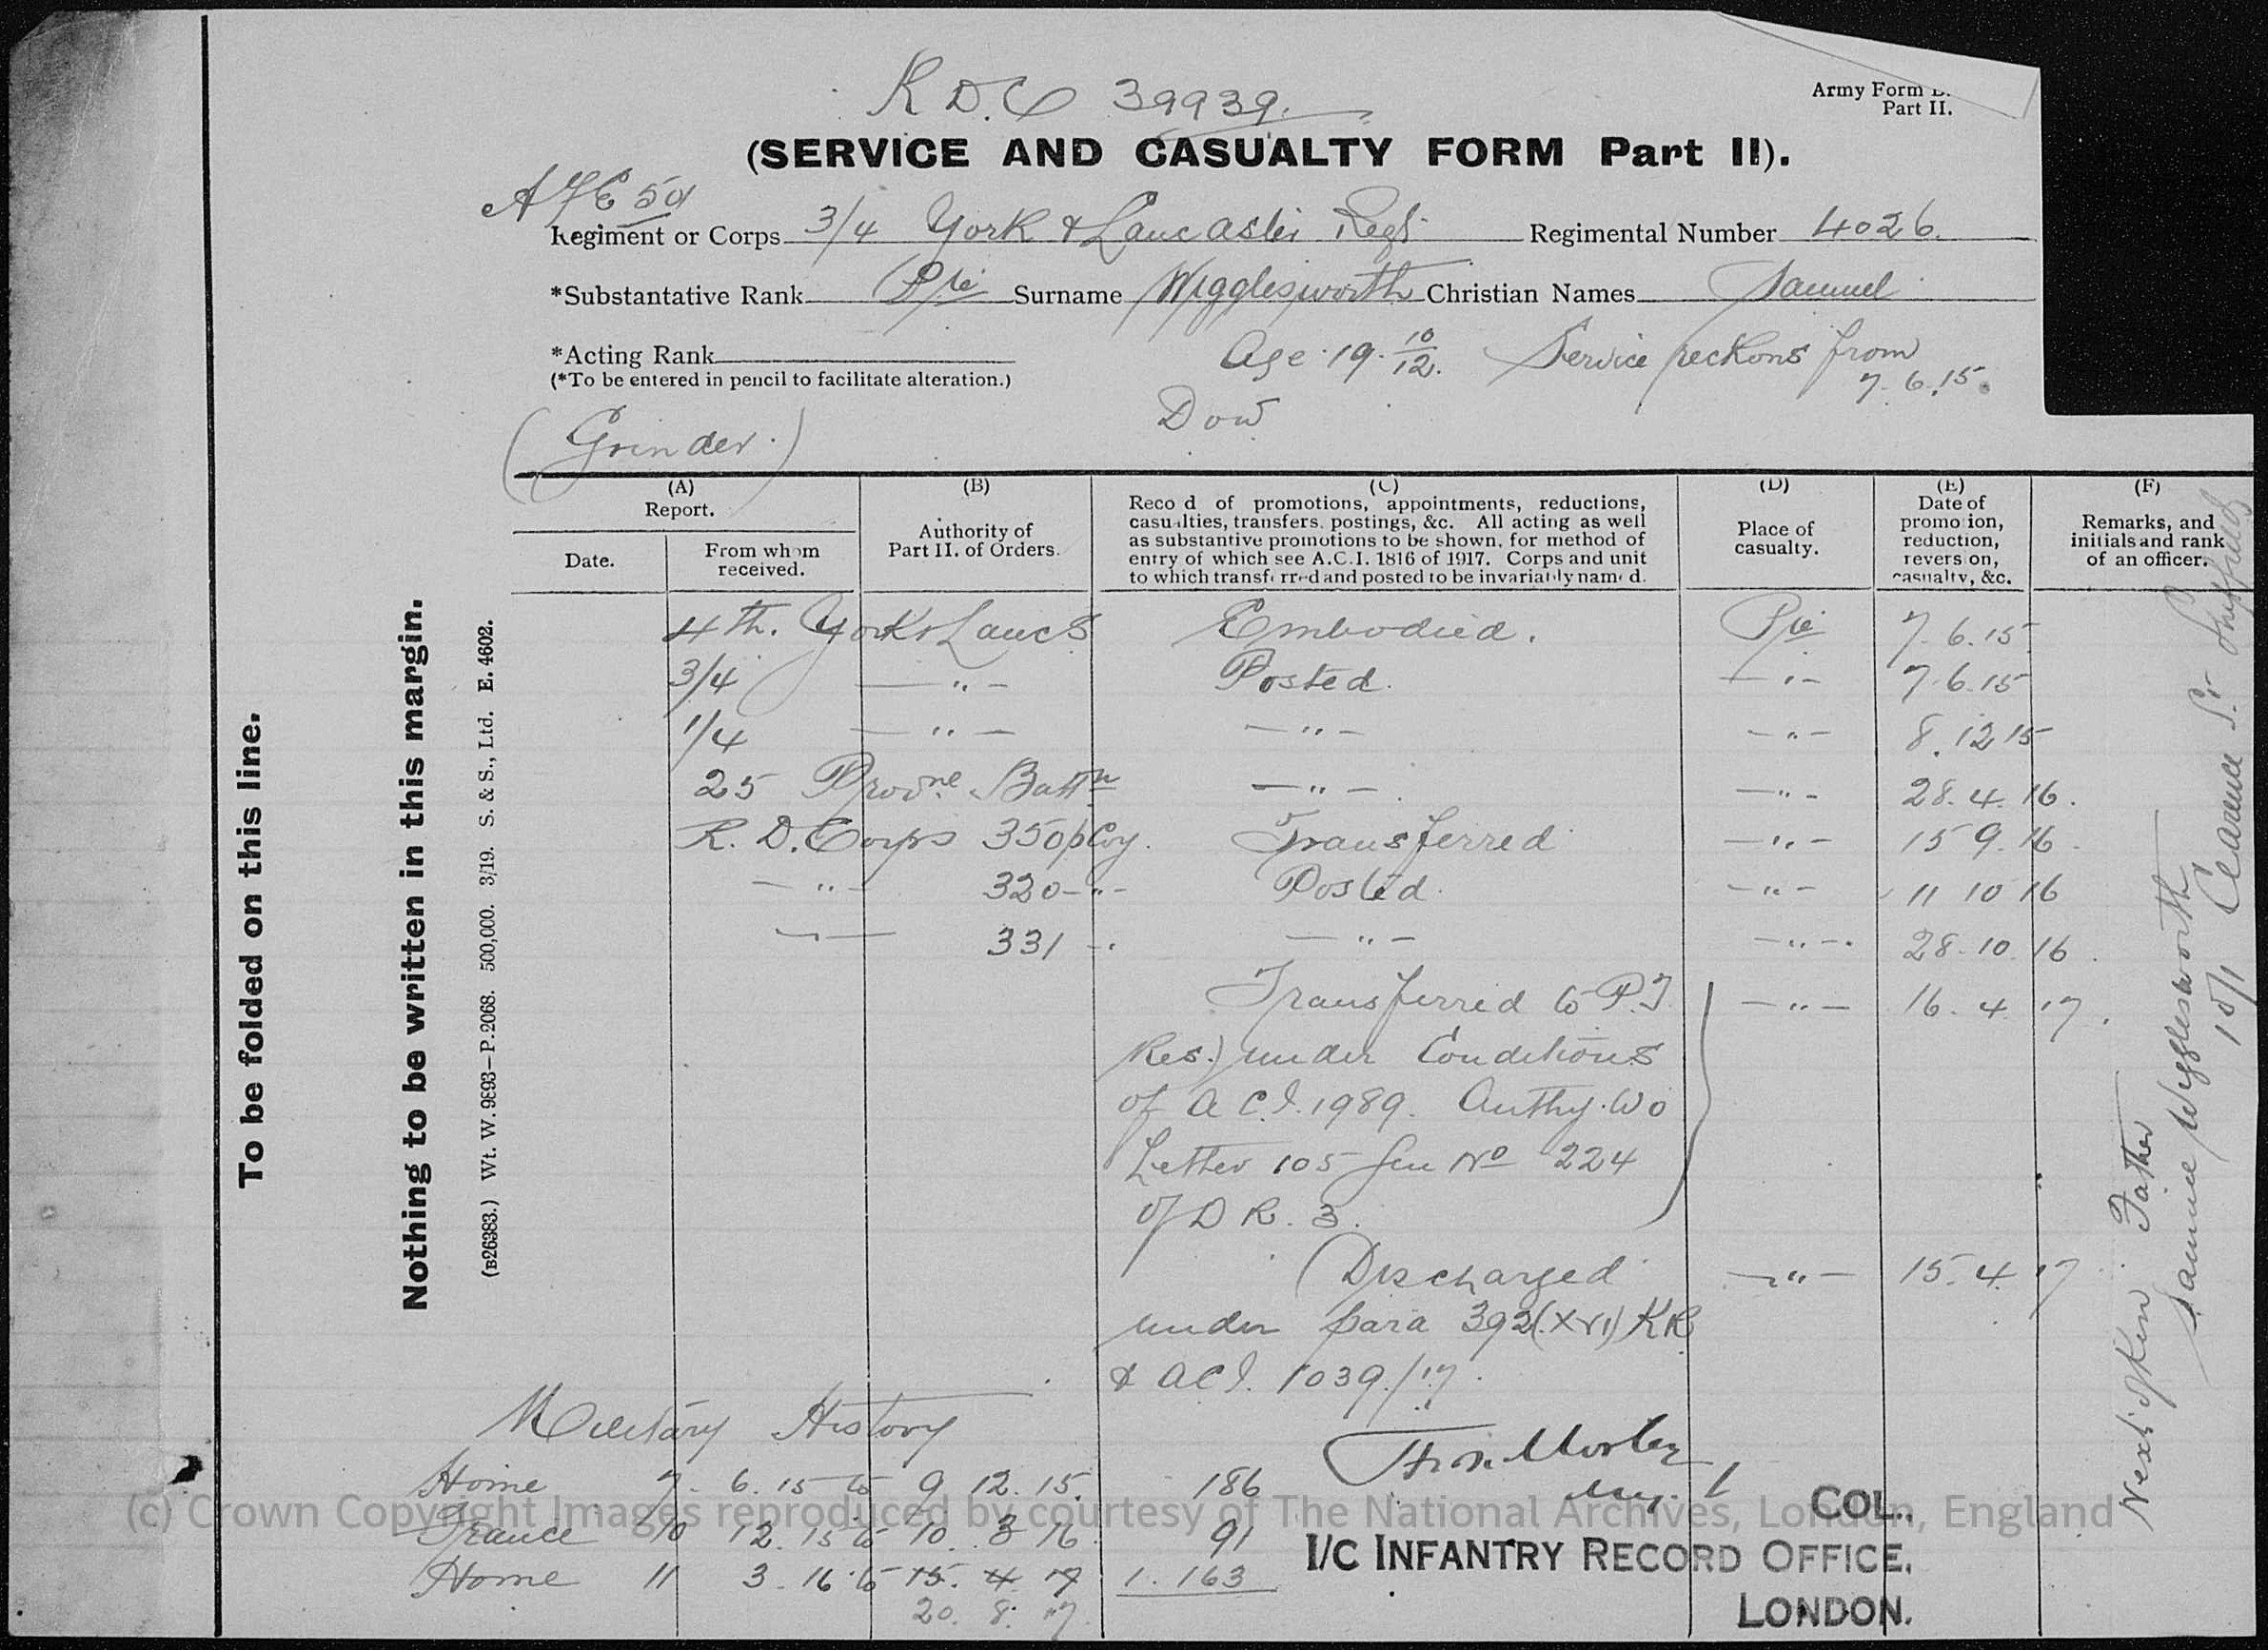 R D. C 39939.
Army Form B.
Part II.
(SERVICE AND CASUALTY FORM Part II).
A F E 501
Regiment or Corps 3/4 York & Lancaster Regt Regimental Number 4026.
*Substantative Rank Pte Surname Wigglesworth Christian Names Samuel
*Acting Rank
(*To be entered in pencil to facilitate alteration.)
Age 19 10/12. Service reckons from
7. 6. 15.
Dow
(Grinder.)
(A) (B) (C) (D) (E) (F)
Report.
Date.
From whom
received.
Authority of
Part II. of Orders.
Reco d of promotions, appointments, reductions,
casualties, transfers, postings, &c. All acting as well
as substantive promotions to be shown, for method of
entry of which see A.C.I. 1816 of 1917. Corps and unit
to which transferred and posted to be invariably named.
Place of
casualty.
Date of
promo ion,
reduction,
revers on,
casualty, &c.
Remarks, and
initials and rank
of an officer.
4th. York & Lancs Embodied. Pte 7. 6. 15.
3/4 — " — Posted. — " — 7. 6. 15
1/4 — " — — " — — " — 8. 12 15
25 Provnl. Battn — " — — " — 28. 4. 16.
R. D. Corps 350 p Coy. Transferred — " — 15 9. 16.
— " — 320 — " — Posted. — " — 11 10 16
— " — 331 — " — " — — " — 28. 10. 16.
Transferred to P.T. — " — 16. 4. 17.
Res.) under Conditions
of A C.I. 1989. Authy. WO
Letter 105 Gen No 224
of D R. 3.
Discharged — " — 15. 4. 17
under para 392(xvi) KR
& ACI. 1039/17.
Military History
Home 7. 6. 15 to 9 12. 15. 186
France 10 12. 15 to 10. 3 16. 91
Home 11 3. 16 to 15. 4 17 1. 163
20. 8. 17.
COL.,
I/C INFANTRY RECORD OFFICE,
LONDON.
Next of Kin Father
Samuel Wigglesworth
Clarence St Sheffield
To be folded on this line.
Nothing to be written in this margin.
(B26383.) Wt. W. 9893—P.2068. 500,000. 3/19. S. & S., Ltd. E. 4602.
(c) Crown Copyright Images reproduced by courtesy of The National Archives, London, England